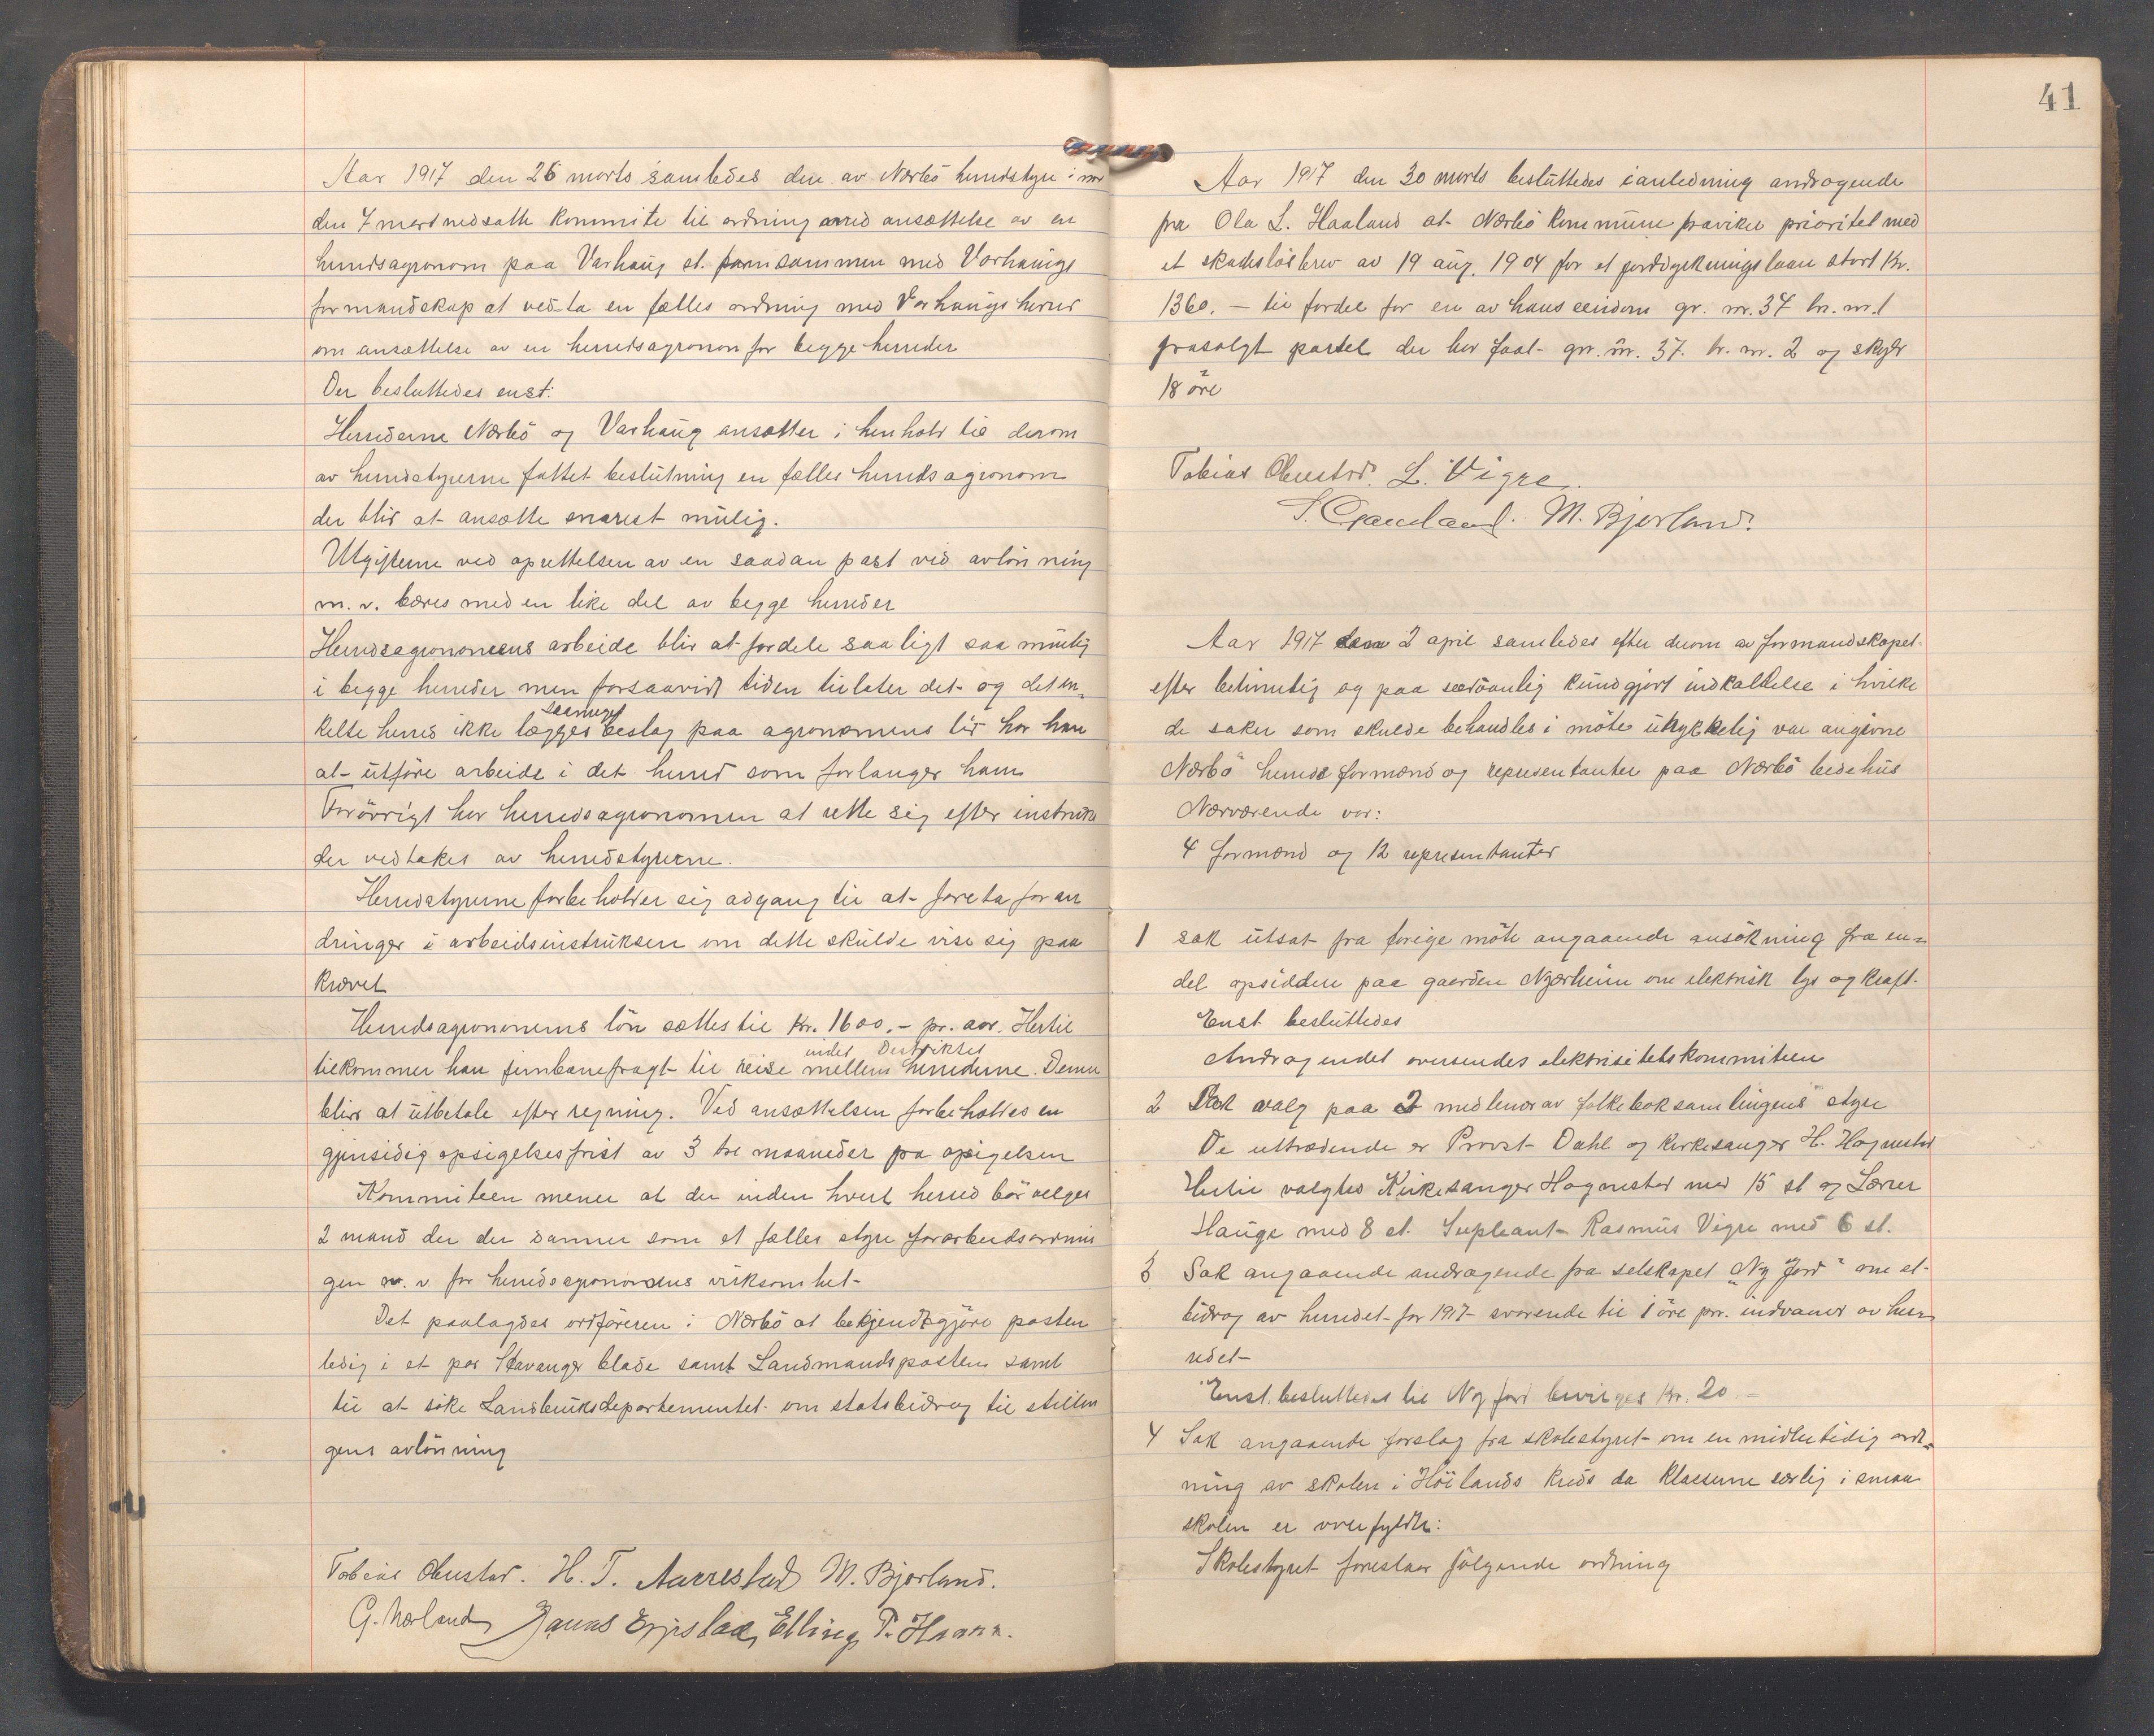 Aar 1917 den 26 marts samledes den av Nærbö herredstyre i mø
den 7 mars nedsatte kommite til ordning med ansættelse av en
herredsagronom paa Varhaug st. sammen med Varhaugs
formandskap at vedta en fælles ordning med Varhaugs herred
om ansættelse av en herredsagronom for begge herreder
Der besluttedes enst:
Herrederne Nærbö og Varhaug ansætter i henhold til derom
av herredstyrerne fattet beslutning en fælles herredsagronom
der blir at ansætte snarest mulig.
Utgifterne ved oprettelsen av en saadan post ved avlönning
m. v. bæres med en like del av begge herreder
Herredsagronomens arbeide blir at fordele saa ligt saa mulig
i begge herreder men forsaavidt tiden tillater det og det en„
saameget
kelte herred ikke lægges beslag paa agronomens tid har han
at utföre arbeide i det herred som forlanger ham
Forövrigt har herredsagronomen at rette sig efter instruks
der vedtakes av herredstyrerne.
Herredstyrerne forbeholder sig adgang til at foreta foran
dringer i arbeidsinstruksen om dette skulde vise sig paa
krævet
Herredsagronomens lön sættes til Kr. 1600.- pr. aar. Hertil
indet Distriktet
tilkommer han jernbanefragt til reise mellem herrederne. Denne
blir at utbetale efter regning. Ved ansættelsen forbeholdes en
gjensidig opsigelsesfrist av 3 tre maaneder fra opsigelsen
Kommiteen mener at der inden hvert herred bör velges
2 mand der der danner som et fælles styre for arbeidsordnin
gen m. v. for herredsagronomens virksomhet-
Det paalagdes ordföreren i Nærbö at bekjendtgjöre posten
ledig i et par Stavanger blade samt Landmandsposten samt
til at söke Landbruksdepartementet om statsbidrag til stillin
gens avlönning
Tobias Obrestad. H. T. Aarrestad M. Bjorland.
G. Nærland Jonas Erjistad, Elling P. Haarr.
41
Aar 1917 den 30 marts besluttedes i anledning andragende
fra Ola L. Haaland at Nærbö kommune fraviker prioritet med
et skadeslösbrev av 19 aug. 1904 for et jorddyrkningslaan stort Kr.
1360. - til fordel for en av hans eiendom gr. nr. 37 br. nr. 1
frasolgt partel der har faat gr. nr. 37. br. nr. 2 og skyld
18 öre
Tobias Obrestad. L. Vigre.
M. Bjorland.
Aar 1917 den 2 april samledes efter derom av formandskapet
efter betimelig og paa sedvanlig kundgjort indkaldelse i hvilke
de saker som skulde behandles i möte utrykkelig var angivne
Nærbö herreds formænd og representanter paa Nærbö bedehus
Nærværende var:
4 formænd og 12 representanter
1 sak utsat fra forige möte angaaende ansökning fra en=
del opsiddere paa gaarden Njærheim om elektrisk lys og kraft.
Enst besluttedes
Andragendet oversendes elektrisitetskommiteen
2 Sak valg paa 2 medlemer av folkeboksamlingens styre
De uttrædende er Provst Dahl og kirkesanger H. Hognestad
Hertil valgtes Kirkesanger Hognestad med 15 st og Lærer
Hauge med 8 st. Supleant Rasmus Vigre med 6 st.
3 Sak angaaende andragende fra selskapet "Ny Jord" om et
bidrag av herredet for 1917 svarende til 1 öre pr. indvaaner av her=
redet-
Enst. besluttedes til Ny jord bevilges Kr. 20.-
4 Sak angaaende forslag fra skolestyret om en midlertidig ord=
ning av skolen i Höilands kreds da klasserne særlig i smaa
skolen er overfyldte:
Skolestyret foreslaar fölgende ordning